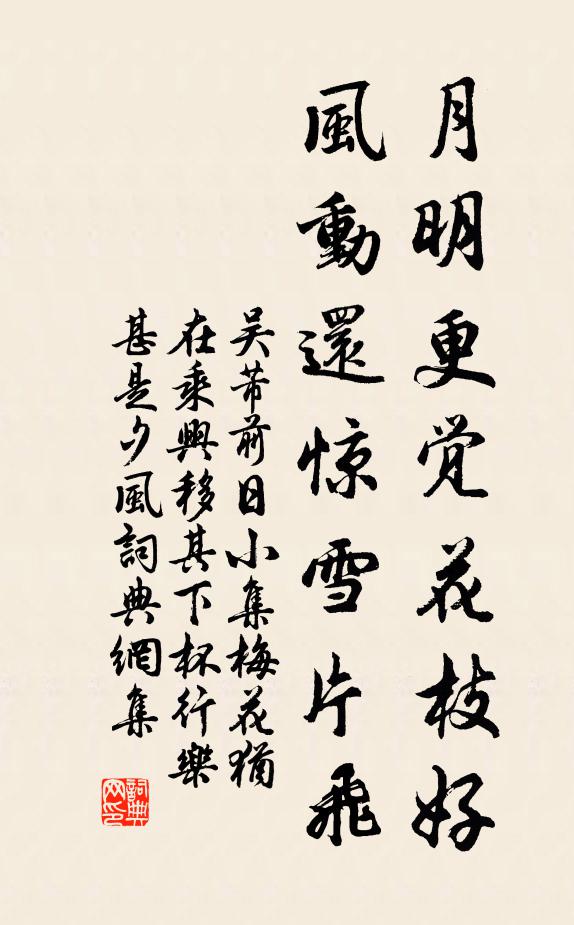 月明更觉花枝好
風動還惊雪片飛
吴芾前日小集梅花猶
在乘興移其下杯行樂
甚是夕風詞典網集
詞典网印